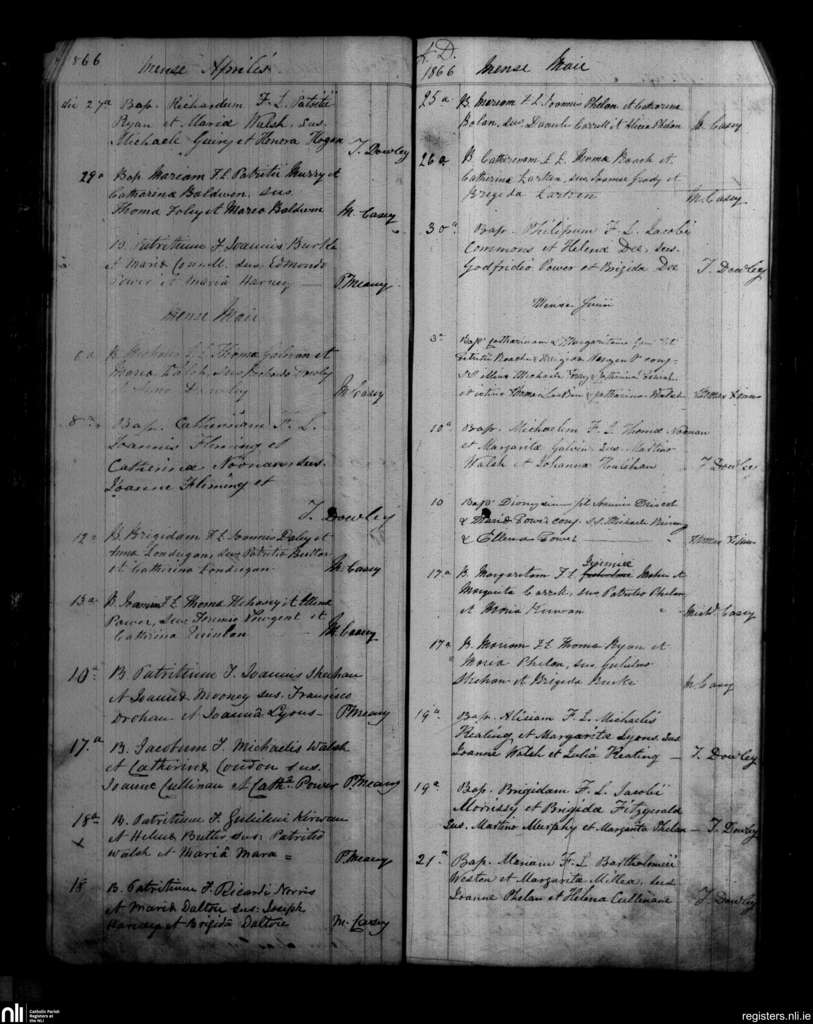 1866 Mense Aprilis
die 27a Bap. Richardum F. L. Patritii
Ryan et Maria Walsh. sus.
Michaele Guiry et Honora Hogan T. Dowley
29a Bap. Mariam F L Patritii Murry et
Catharina Baldwin. sus
Thoma Foley et Maria Baldwin M. Casey
B. Patritium F. Joannis Burke
et Maria sus. Edmondo
Power et Maria Harney P. Meany
Mense Maii
B. F L Thoma et
Maria Walsh
M. Casey
8 Bap. Catherinam F. L.
Joannis Fleming et
Catherina Noonan. sus.
Joanne Fleming et
T. Dowley
12a B. Brigidam F L Joannis Daley et
Anna Londregan, sus Patritio Butler
et Catharina Londregan M. Casey
13a B. F L Thoma et
Power, sus et
Catharina Quinlan M. Casey
10a B Patritium F. Joannis Shechan
et Joanna Mooney sus. Francisco
Drohan et Joanna Lyons P. Meany
17.a B. Jacobum F Michaelis Walsh
et Catherina Condon sus.
Joanne Cullinan et Cath. Power P. Meany
18a B. Patritium F. Gulielmi Kirwan
et Helena Butler sus. Patritio
x Walsh et Maria Mara = P. Meany
18 B. Patritium F. Ricardi Norris
et Maria Dalton sus. Joseph
et Brigida Daltone M. Casey
A. D.
1866 Mense Maii
25a B. Mariam F L Joannis Phelan et Catharina
sus. Daniele Carroll et Alicia Phelan M. Casey
26a B. Catherinam F L Thoma Roach et
Catherina Larken, sus Joanne Grady et
Brigida Larken M. Casey
30a. Bap. Philipum F. L. Jacobi
Commons et Helena Dee. sus.
Godfridio Power et Brigida Dee T. Dowley
Mense Junii
3a Bap. Catharinam & Margaritam
Patritii Roach & Brigida conj.
Michaele et
Thoma & Catharina Walsh Thomas
10a Bap. Michaelem F. L. Thoma Noonan
et Margarita Galvin sus. Martino
Walsh et Johanna T. Dowley
10 Bap. Dionysium Driscol
& Power conj. S.S. Michaele
& Ellena Power Thomas
Joannis
17a B. Margaritam F L et
Margarita Carroll, sus Patritio Phelan
et Maria Kirwan Michl. Casey
17a B. Mariam F L Thoma Ryan et
Maria Phelan, sus Gulielmo
Shechan et Brigida Burke M Casey
19a Bap. Aliciam F. L. Michaelis
Keating, et Margarita Lyons. sus
Joanne Walsh et Julia Keating — T. Dowley
19a Bap. Brigidam F. L. Jacobi
Morrissy et Brigida Fitzgerald
sus. Martino Murphy et Margarita Phelan — T. Dowley
21a Bap. Mariam F. L Bartholomeii
Weston et Margarita Millea, sus
Joanne Phelan et Helena Cullinane T. Dowley
nli Catholic Parish
Registers at
the NLI
registers.nli.ie